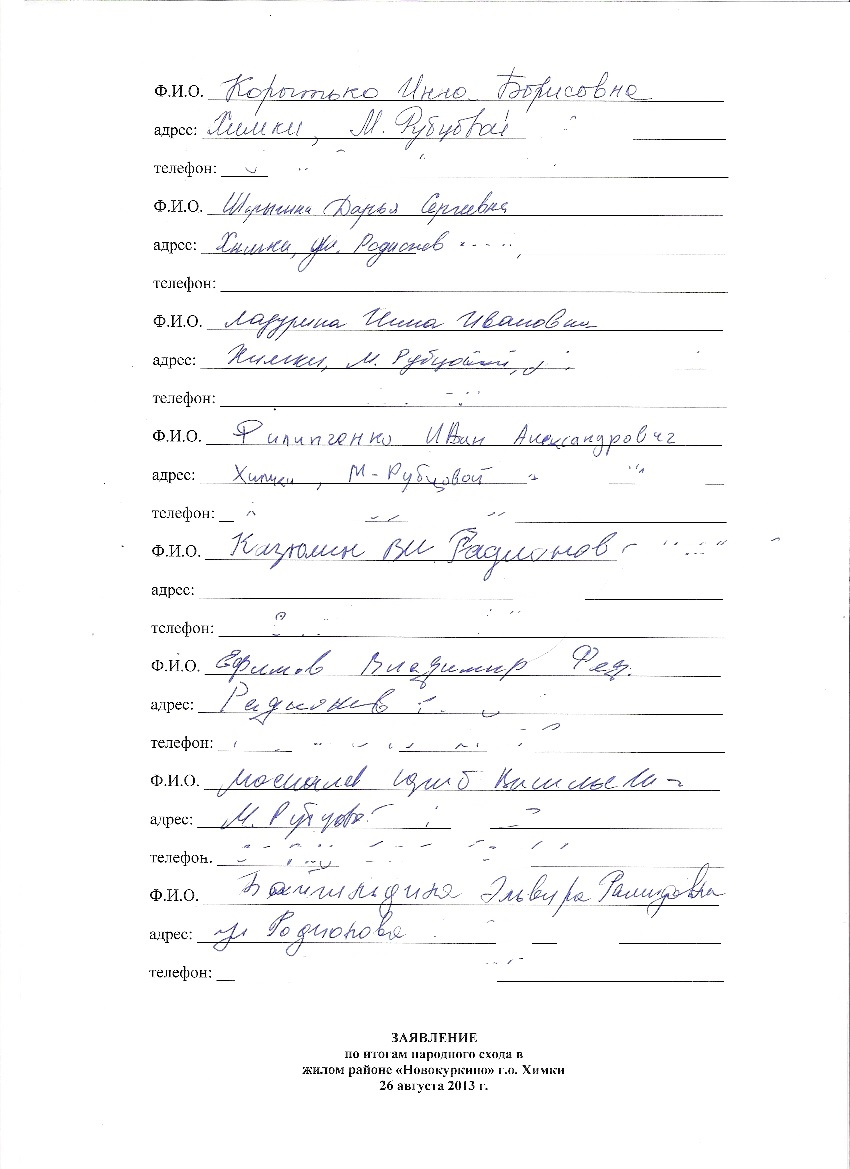 Ф.И.О. Коротько Инна Борисовна
адрес: Химки, М. Рубцовой
телефон:
Ф.И.О. Шарыгина Дарья Сергеевна
адрес: Химки, ул. Родионов
телефон:
Ф.И.О. Ладурина Нина Ивановна
адрес: Химки, М. Рубцовой,
телефон:
Ф.И.О. Филипченко Иван Александрович
адрес: Химки, М-Рубцовой
телефон:
Ф.И.О. ВИ Радионов
адрес:
телефон:
Ф.И.О. Ефимов Владимир Фед.
адрес: Радионов
телефон:
Ф.И.О.
адрес: М. Рубцовой
телефон.
Ф.И.О. Эльвира
адрес: ул Родионова
телефон:
ЗАЯВЛЕНИЕ
по итогам народного схода в
жилом районе «Новокуркино» г.о. Химки
26 августа 2013 г.